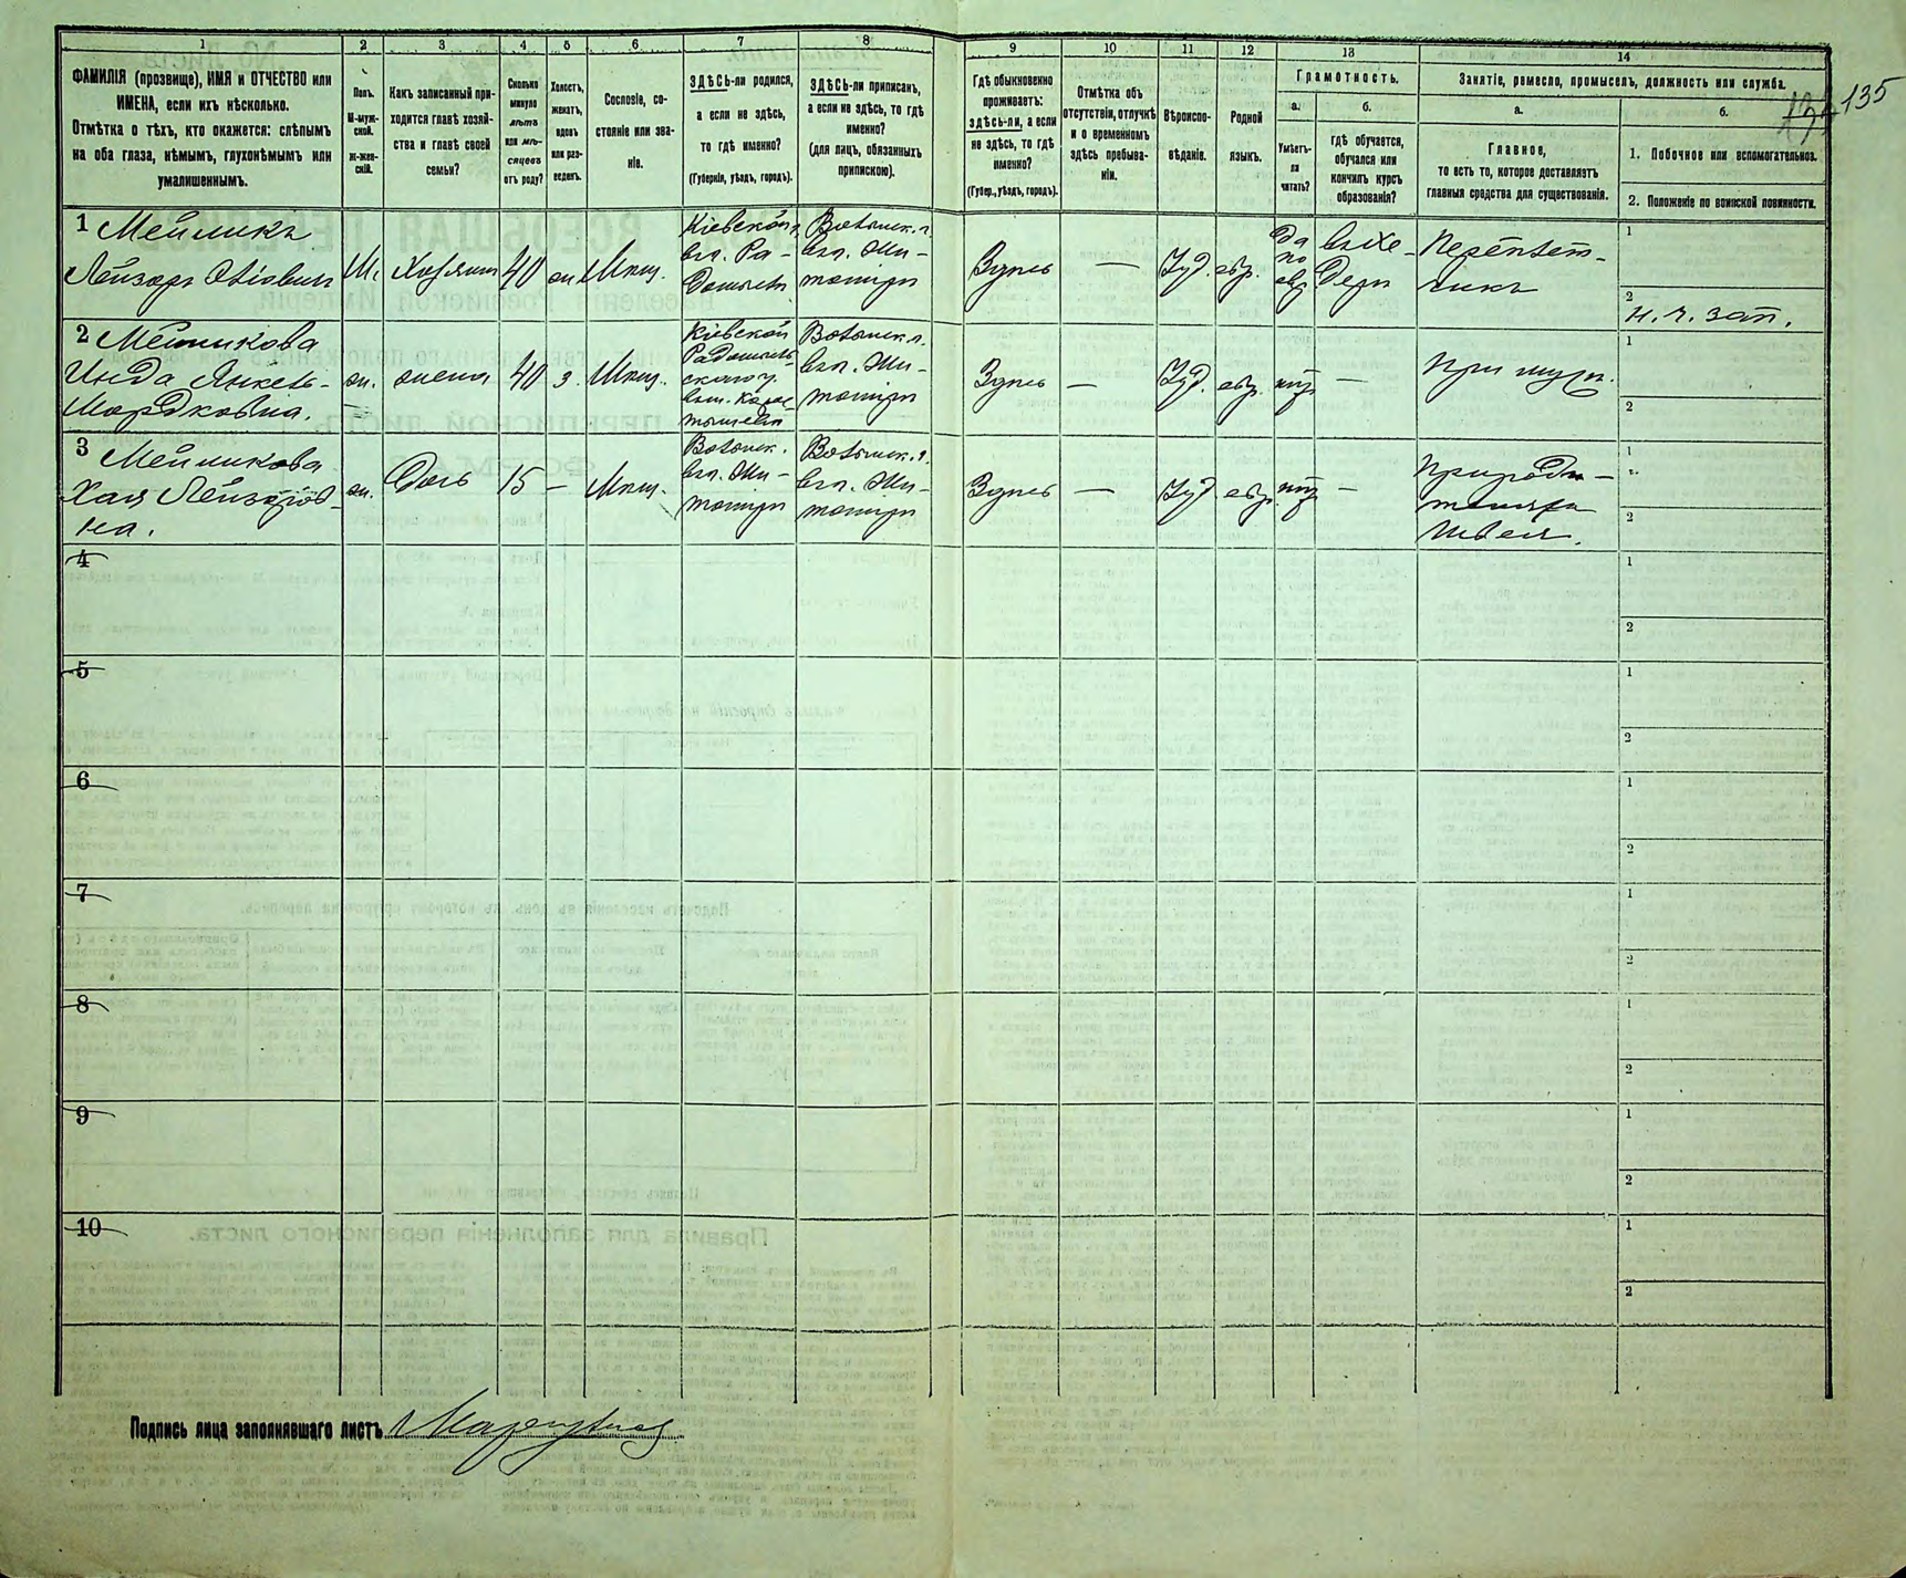 135
1 2 3 4 5 6 7 8 9 10 11 12 13 14
ФАМИЛІЯ (прозвище), ИМЯ и ОТЧЕСТВО или
ИМЕНА, если ихъ нѣсколько.
Отмѣтка о тѣхъ, кто окажется: слѣпымъ
на оба глаза, нѣмымъ, глухонѣмымъ или
умалишеннымъ.
Полъ.
М-муж-
ской.
ж-жен-
скій.
Какъ записанный при-
ходится главѣ хозяй-
ства и главѣ своей
семьи?
Сколько
минуло
лѣтъ
или мѣ-
сяцевъ
отъ роду?
Холостъ,
женатъ,
вдовъ
или раз-
веденъ.
Сословіе, со-
стояніе или зва-
ніе.
ЗДѢСЬ-ли родился,
а если не здѣсь,
то гдѣ именно?
(Губернія, уѣздъ, городъ).
ЗДѢСЬ-ли приписанъ,
а если не здѣсь, то гдѣ
именно?
(для лицъ, обязанныхъ
припискою).
Гдѣ обыкновенно
проживаетъ:
здѣсь-ли, а если
не здѣсь, то гдѣ
именно?
(Губер., уѣздъ, городъ).
Отмѣтка объ
отсутствіи, отлучкѣ
и о временномъ
здѣсь пребыва-
ніи.
Вѣроиспо-
вѣданіе.
Родной
языкъ.
Грамотность.
а.
Умѣетъ-
ли
читать?
б.
гдѣ обучается,
обучался или
кончилъ курсъ
образованія?
Занятіе, ремесло, промыселъ, должность или служба.
а.
Главное,
то есть то, которое доставляетъ
главныя средства для существованія.
б.
1. Побочное или вспомогательное.
2. Положеніе по воинской повинности.
1 Мейликъ
Лейзоръ
М.
Хозяинъ
40
ж.
Мѣщ.
Кіевской г.
Ра-
домысль
Волынск. г.
Жи-
томиръ
Здѣсь
—
Іуд.
евр.
да
по
евр
въ хе-
дерѣ
1
2
н. ч. зап.
2 Мейликова
Мордковна.
ж.
жена
40
з.
Мѣщ.
Кіевской
Радомысль-
скаго у.
Волынск. г.
Жи-
томиръ
Здѣсь
—
Іуд.
евр.
нѣт
—
При мужѣ.
1
2
3 Мейликова
Хая Лейзоров-
на.
ж.
Дочь
15
—
Мѣщ.
Волынск.
Жи-
томиръ
Волынск. г.
Жи-
томиръ
Здѣсь
—
Іуд.
евр.
нѣт
—
При роди-
теляхъ
Швея.
1
2
4
1
2
5
1
2
6
1
2
7
1
2
8
1
2
9
1
2
10
1
2
Подпись лица заполнявшаго листъ